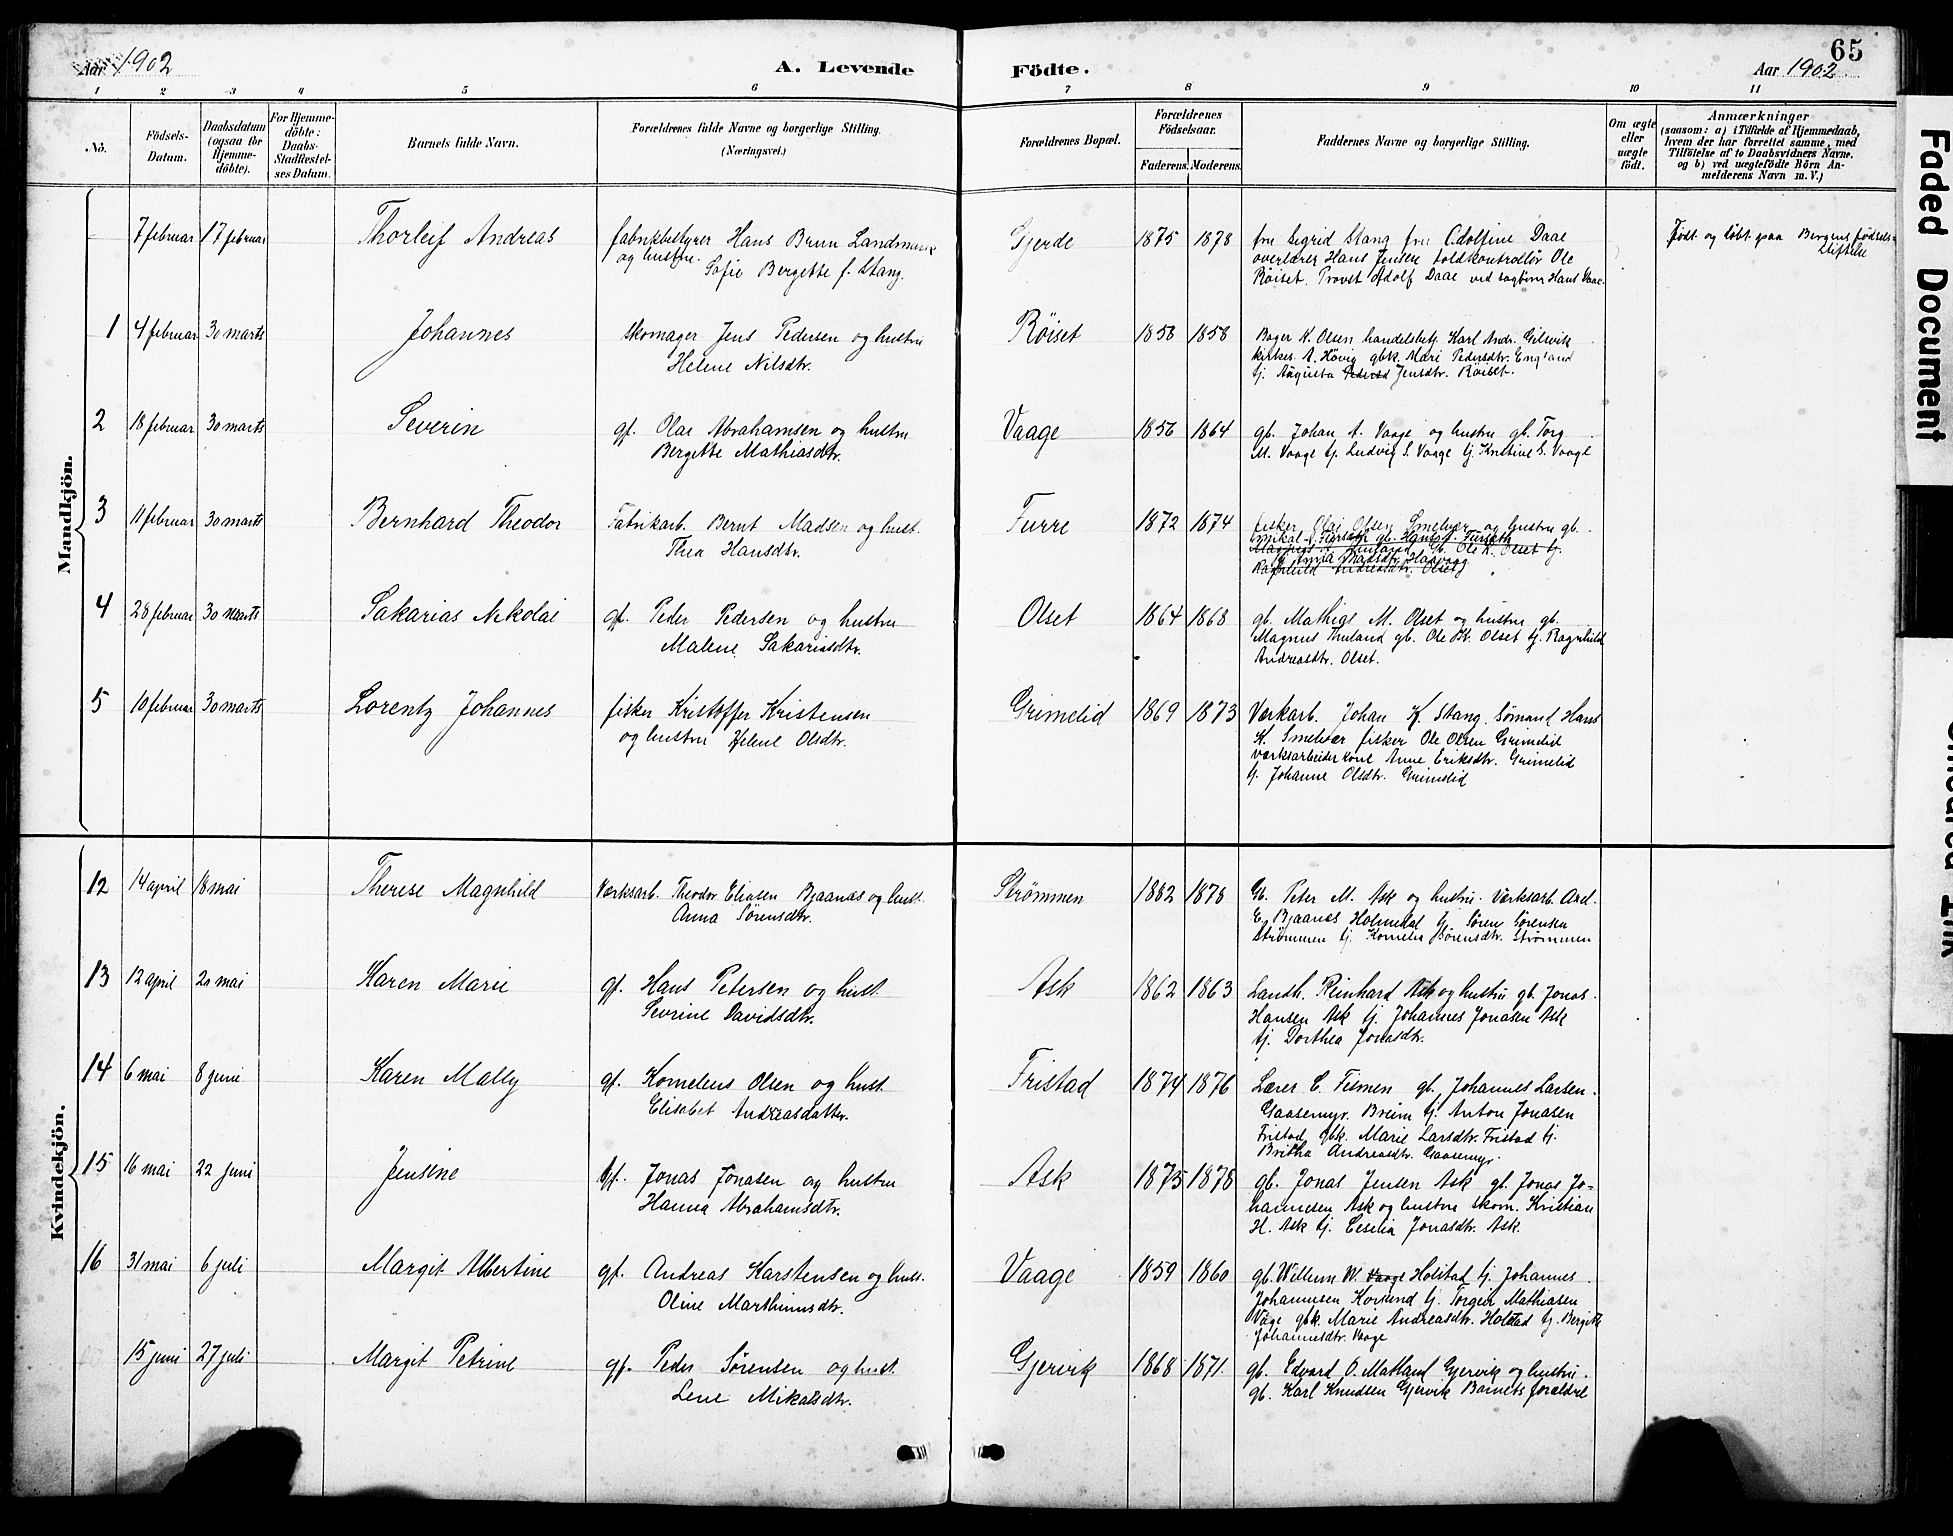 65
Aar 1902
A. Levende Födte.
Aar 1902.
1 2 3 4 5 6 7 8 9 10 11
No.
Födsels-Datum.
Daabsdatum (ogsaa for Hjemme-döbte).
For Hjemme-döbte: Daabs-Stadfæstel-ses Datum.
Barnets fulde Navn.
Forældrenes fulde Navne og borgerlige Stilling. (Næringsvei.)
Forældrenes Bopæl.
Forældrenes Födselsaar.
Faderens. Moderens.
Faddernes Navne og borgerlige Stilling.
Om ægte eller uægte födt.
Anmærkninger
(saasom: a) i Tilfælde af Hjemmedaab, hvem der har forrettet samme, med Tilföielse af to Daabsvidners Navne, og b) ved uægtefödte Börn An-melderens Navn m. V.)
Mandkjön.
7 februar 17 februar Thorleif Andreas fabrikbestyrer Hans Brun Landmark
og hustru Sofie Bergette f. Stang.
Gjerde 1875 1878 fru Sigrid Stang fru Adolfine Daae
overlærer Hans Jensen toldkontrollör Ole
Röiset. Provst Adolf Daae ved sagfører Hans Vaae.
Födt og döbt paa Bergens födsels=
stiftelse
1 4 februar 30 marts Johannes skomager Jens Pedersen og hustru
Helene Nilsdtr.
Röiset 1858 1858 Bager K. Olsen handelsbetj. Karl Andr. Gilsvik
kirkes. A. Hövig gbk. Mari Pedersdtr. England
tj. Augusta Jensdtr. Röiset.
2 18 februar 30 marts Severin gf. Olai Abrahamsen og hustru
Bergette Mathiasdtr.
Vaage 1856 1864 gb. Johan A. Vaage og hustru gb. Torg
M. Vaage tj. Ludvig S. Vaage tj. Kristine S. Vaage
3 11 februar 30 marts Bernhard Theodor Fabrikarb. Bernt Madsen og hust.
Thea Hansdtr.
Furre 1872 1874 fisker Olai Olsen Smelvær og hustru gb.
Ole K. Olset tj.
Ragnhild Andreasdtr. Olset
4 28 februar 30 marts Sakarias Nikolai gf. Peder Pedersen og hustru
Malene Sakariasdtr.
Olset 1864 1868 gb. Mathias M. Olset og hustru gb.
Magnus Thuland gb. Ole K. Olset tj. Ragnhild
Andreasdtr. Olset.
5 10 februar 30 marts Lorentz Johannes fisker Kristoffer Kristensen
og hustru Helene Olsdtr.
Grimelid 1869 1873 Værkarb. Johan K. Stang. Sömand Hans
K. Smelvær fisker Ole Olsen Grimelid
værksarbeiderkone Anne Eriksdtr. Grimelid
tj. Johanne Olsdtr. Grimelid
Kvindekjön.
12 14 april 18 mai Therese Magnhild Værksarb. Theodor Eliasen Bjaanæs og hust.
Anna Sörensdtr.
Strömmen 1882 1878 Gb. Peter M. Ask og hustru. Værksarb. Axel
E. Bjaanæs Holmedal tj. Sören Sörensen
Strömmen tj. Kornelia Sörensdtr. Strömmen
13 12 april 20 mai Karen Marie gf. Hans Petersen og hust.
Sevrine Davidsdtr.
Ask 1862 1863 Landh. Reinhard Ask og hustru gb. Jonas
Hansen Ask tj. Johannes Jonasen Ask
tj. Dorthea Jonasdtr.
14 6 mai 8 juni Karen Mally gf. Kornelius Olsen og hust.
Elisabet Andreasdatter.
Fristad 1874 1876 Lærer E. Tismen gb. Johannes Larsen
Gaasemyr. Breim tj. Anton Jonasen
Fristad gbk. Marie Larsdtr. Fristad tj.
Britha Andreasdtr. Gaasemyr.
15 16 mai 22 juni Jensine gf. Jonas Jonasen og hustru
Hanna Abrahamsdtr.
Ask 1875 1878 gb. Jonas Jensen Ask gb. Jonas Jo=
hannesen Ask og hustru skom. Kristian
H. Ask tj. Cesilia Jonasdtr. Ask.
16 31 mai 6 juli Margit Albertine gf. Andreas Karstensen og hust.
Oline Marthinusdtr.
Vaage 1859 1860 gb. Willum W. Vaage Holstad tj. Johannes
Johannesen Korsund tj. Torgeir Mathiasen
Våge gbk. Marie Andreasdtr. Holstad tj. Bergitte
Johannesdtr. Vaage
15 juni 27 juli Margit Petrine gf. Peder Sörensen og hust.
Lene Mikalsdtr.
Gjervik 1868 1871. gb. Edvard O. Matland Gjervik og hustru.
gb. Karl Knudsen Gjervik Barnets forældre
Faded Document